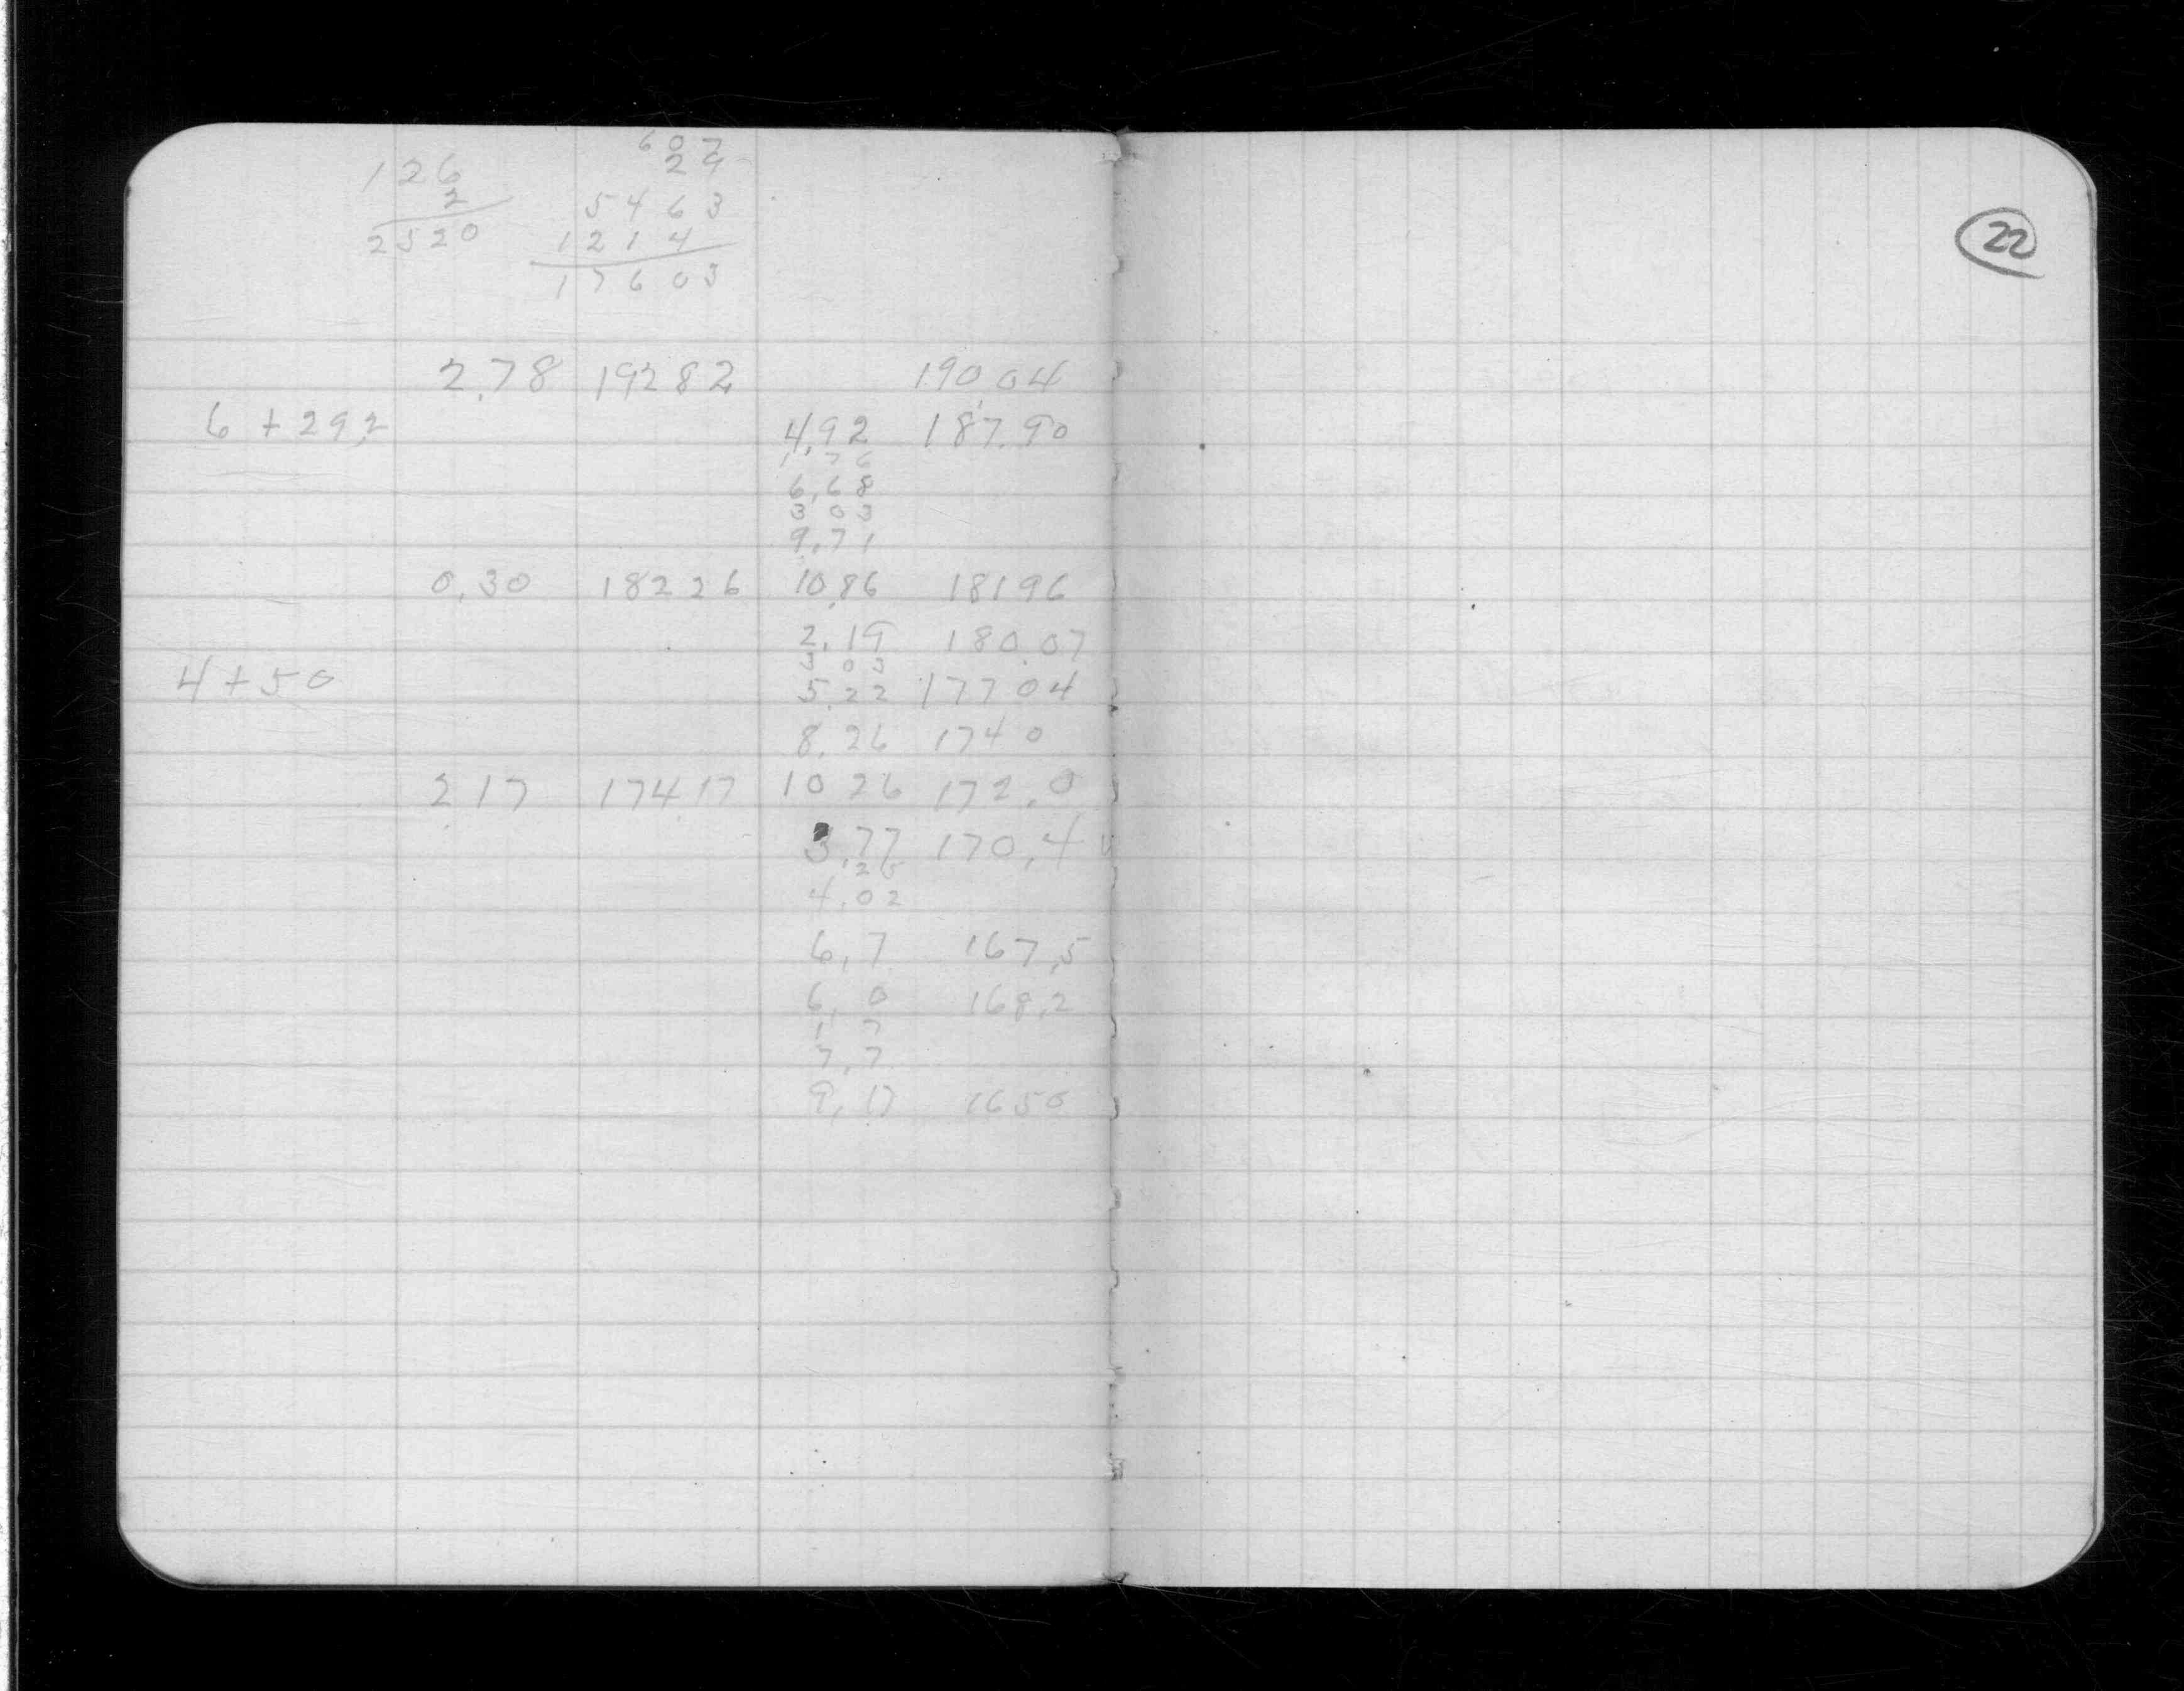 607
126 29
2 5463
2520 1214
17603
22
2.78 19282 190.04
6 + 29.2 4.92 187.90
1.76
6.68
3 03
9.71
0.30 18226 10.86 18196
2.19 180.07
3 03
4 + 50 5.22 177 04
8.26 174 0
2 17 174 17 10 26 172.0
3.77 170.4
.25
4.02
6.7 167.5
6.0 168.2
1 7
7.7
9.17 1650